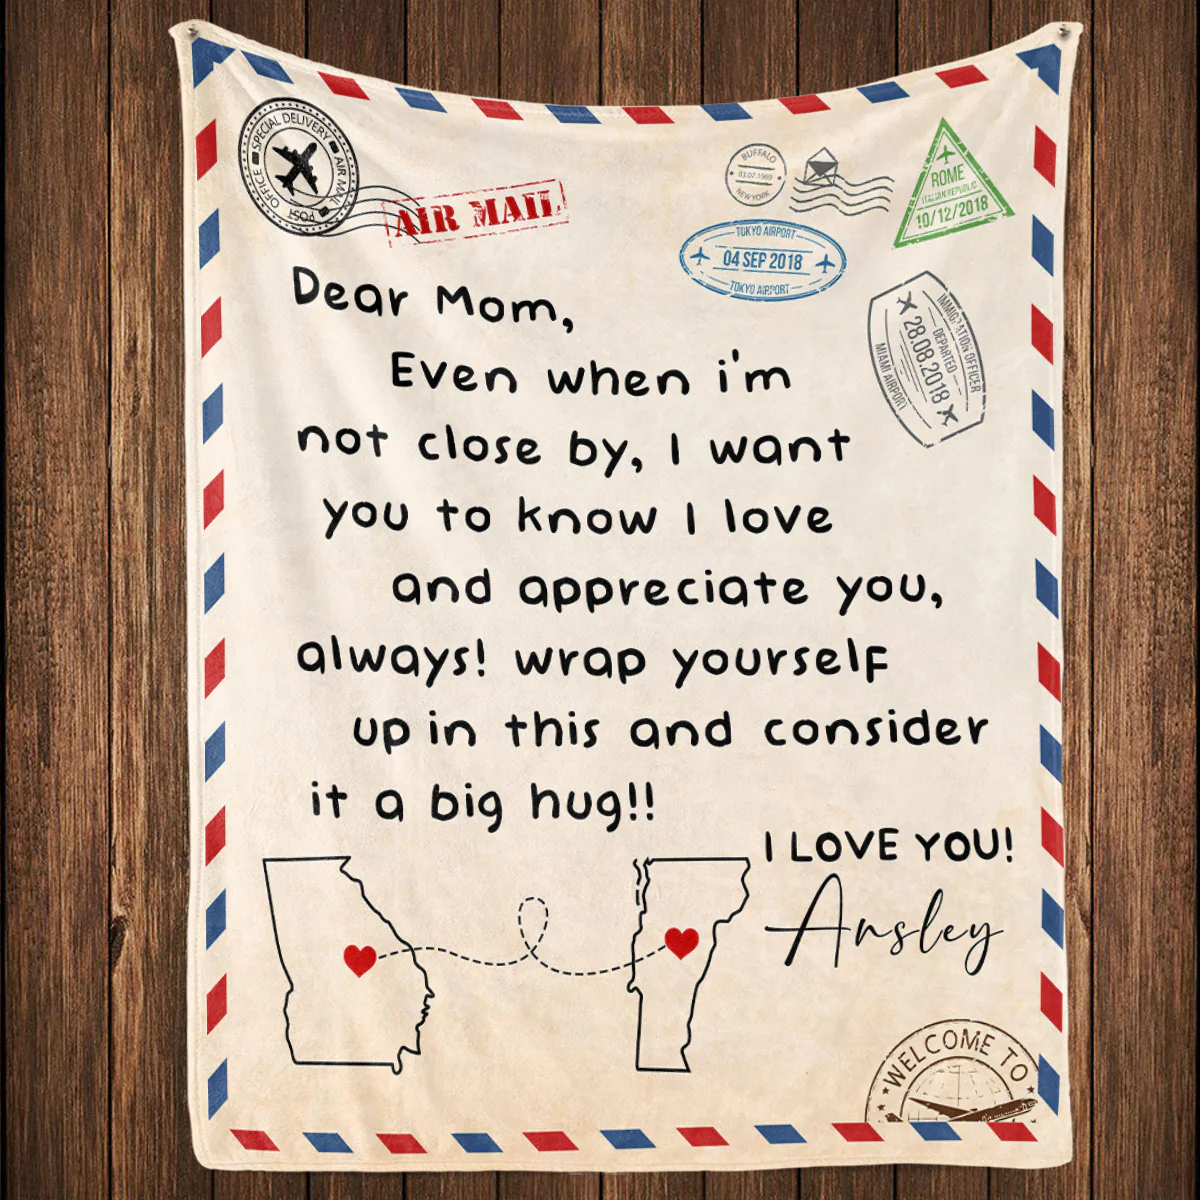 SPECIAL DELIVERY
AIR MAIL
POST OFFICE
AIR MAIL
BUFFALO
03.07.1969
NEW YORK
ROME
ITALIAN REPUBLIC
10/12/2018
TOKYO AIRPORT
04 SEP 2018
TOKYO AIRPORT
IMMIGRATION OFFICER
DEPARTED
28.08.2018
MIAMI AIRPORT
Dear Mom,
Even when i'm
not close by, I want
you to know I love
and appreciate you,
always! wrap yourself
up in this and consider
it a big hug!!
I LOVE YOU!
Ansley
WELCOME TO